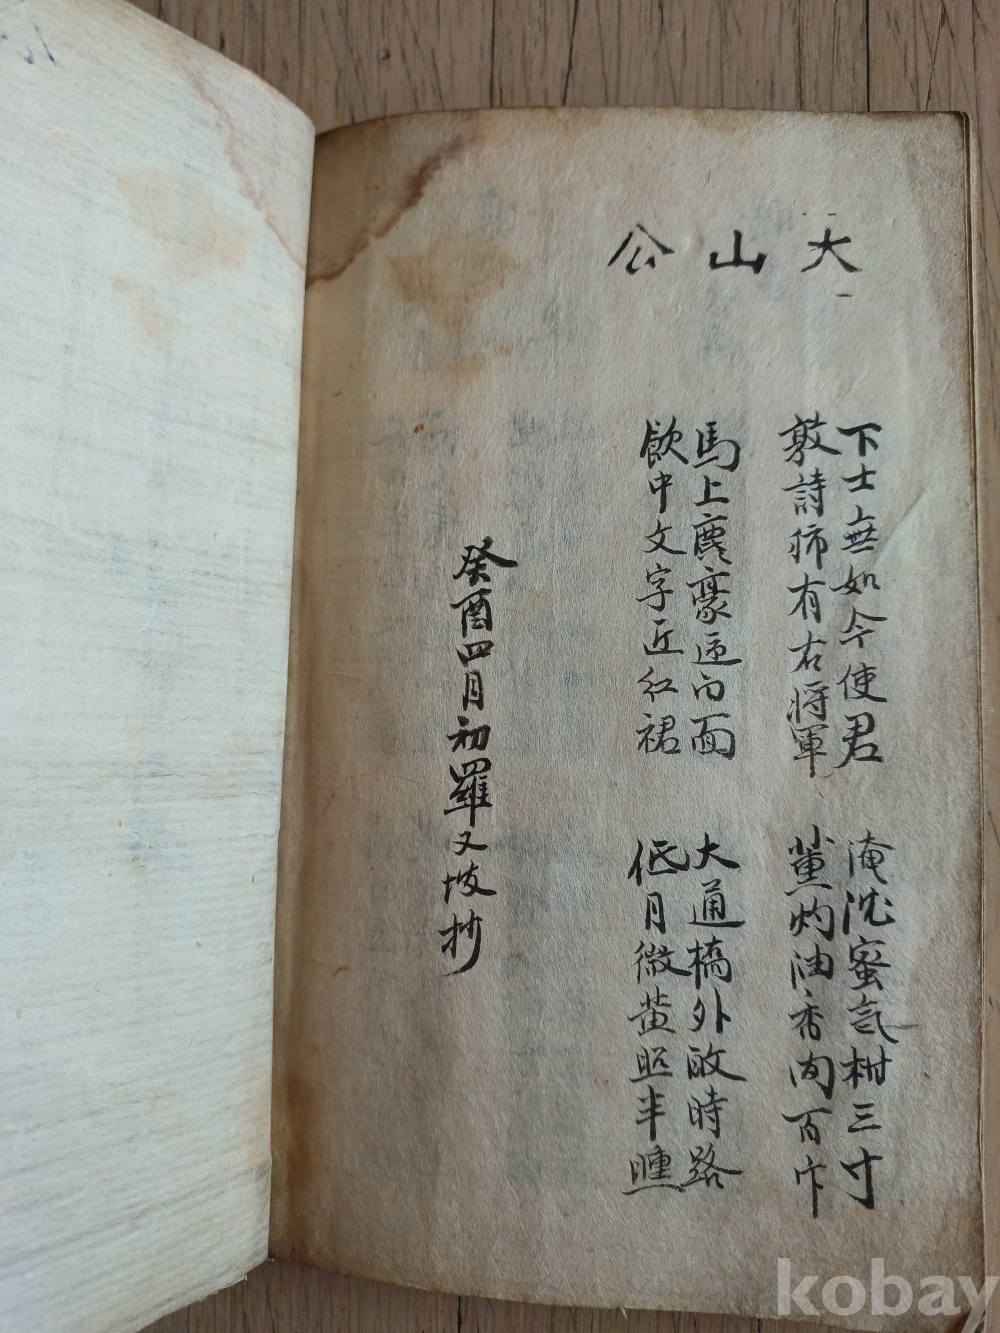 大山公
下士無如今使君
敦詩称有右將軍
淹沈蜜氣柑三寸
薰灼油香肉百斤
馬上豪逼白面
飮中文字近紅裙
大通橋外時路
低月微黃照半曛
癸酉四月初羅又坡抄
kobay